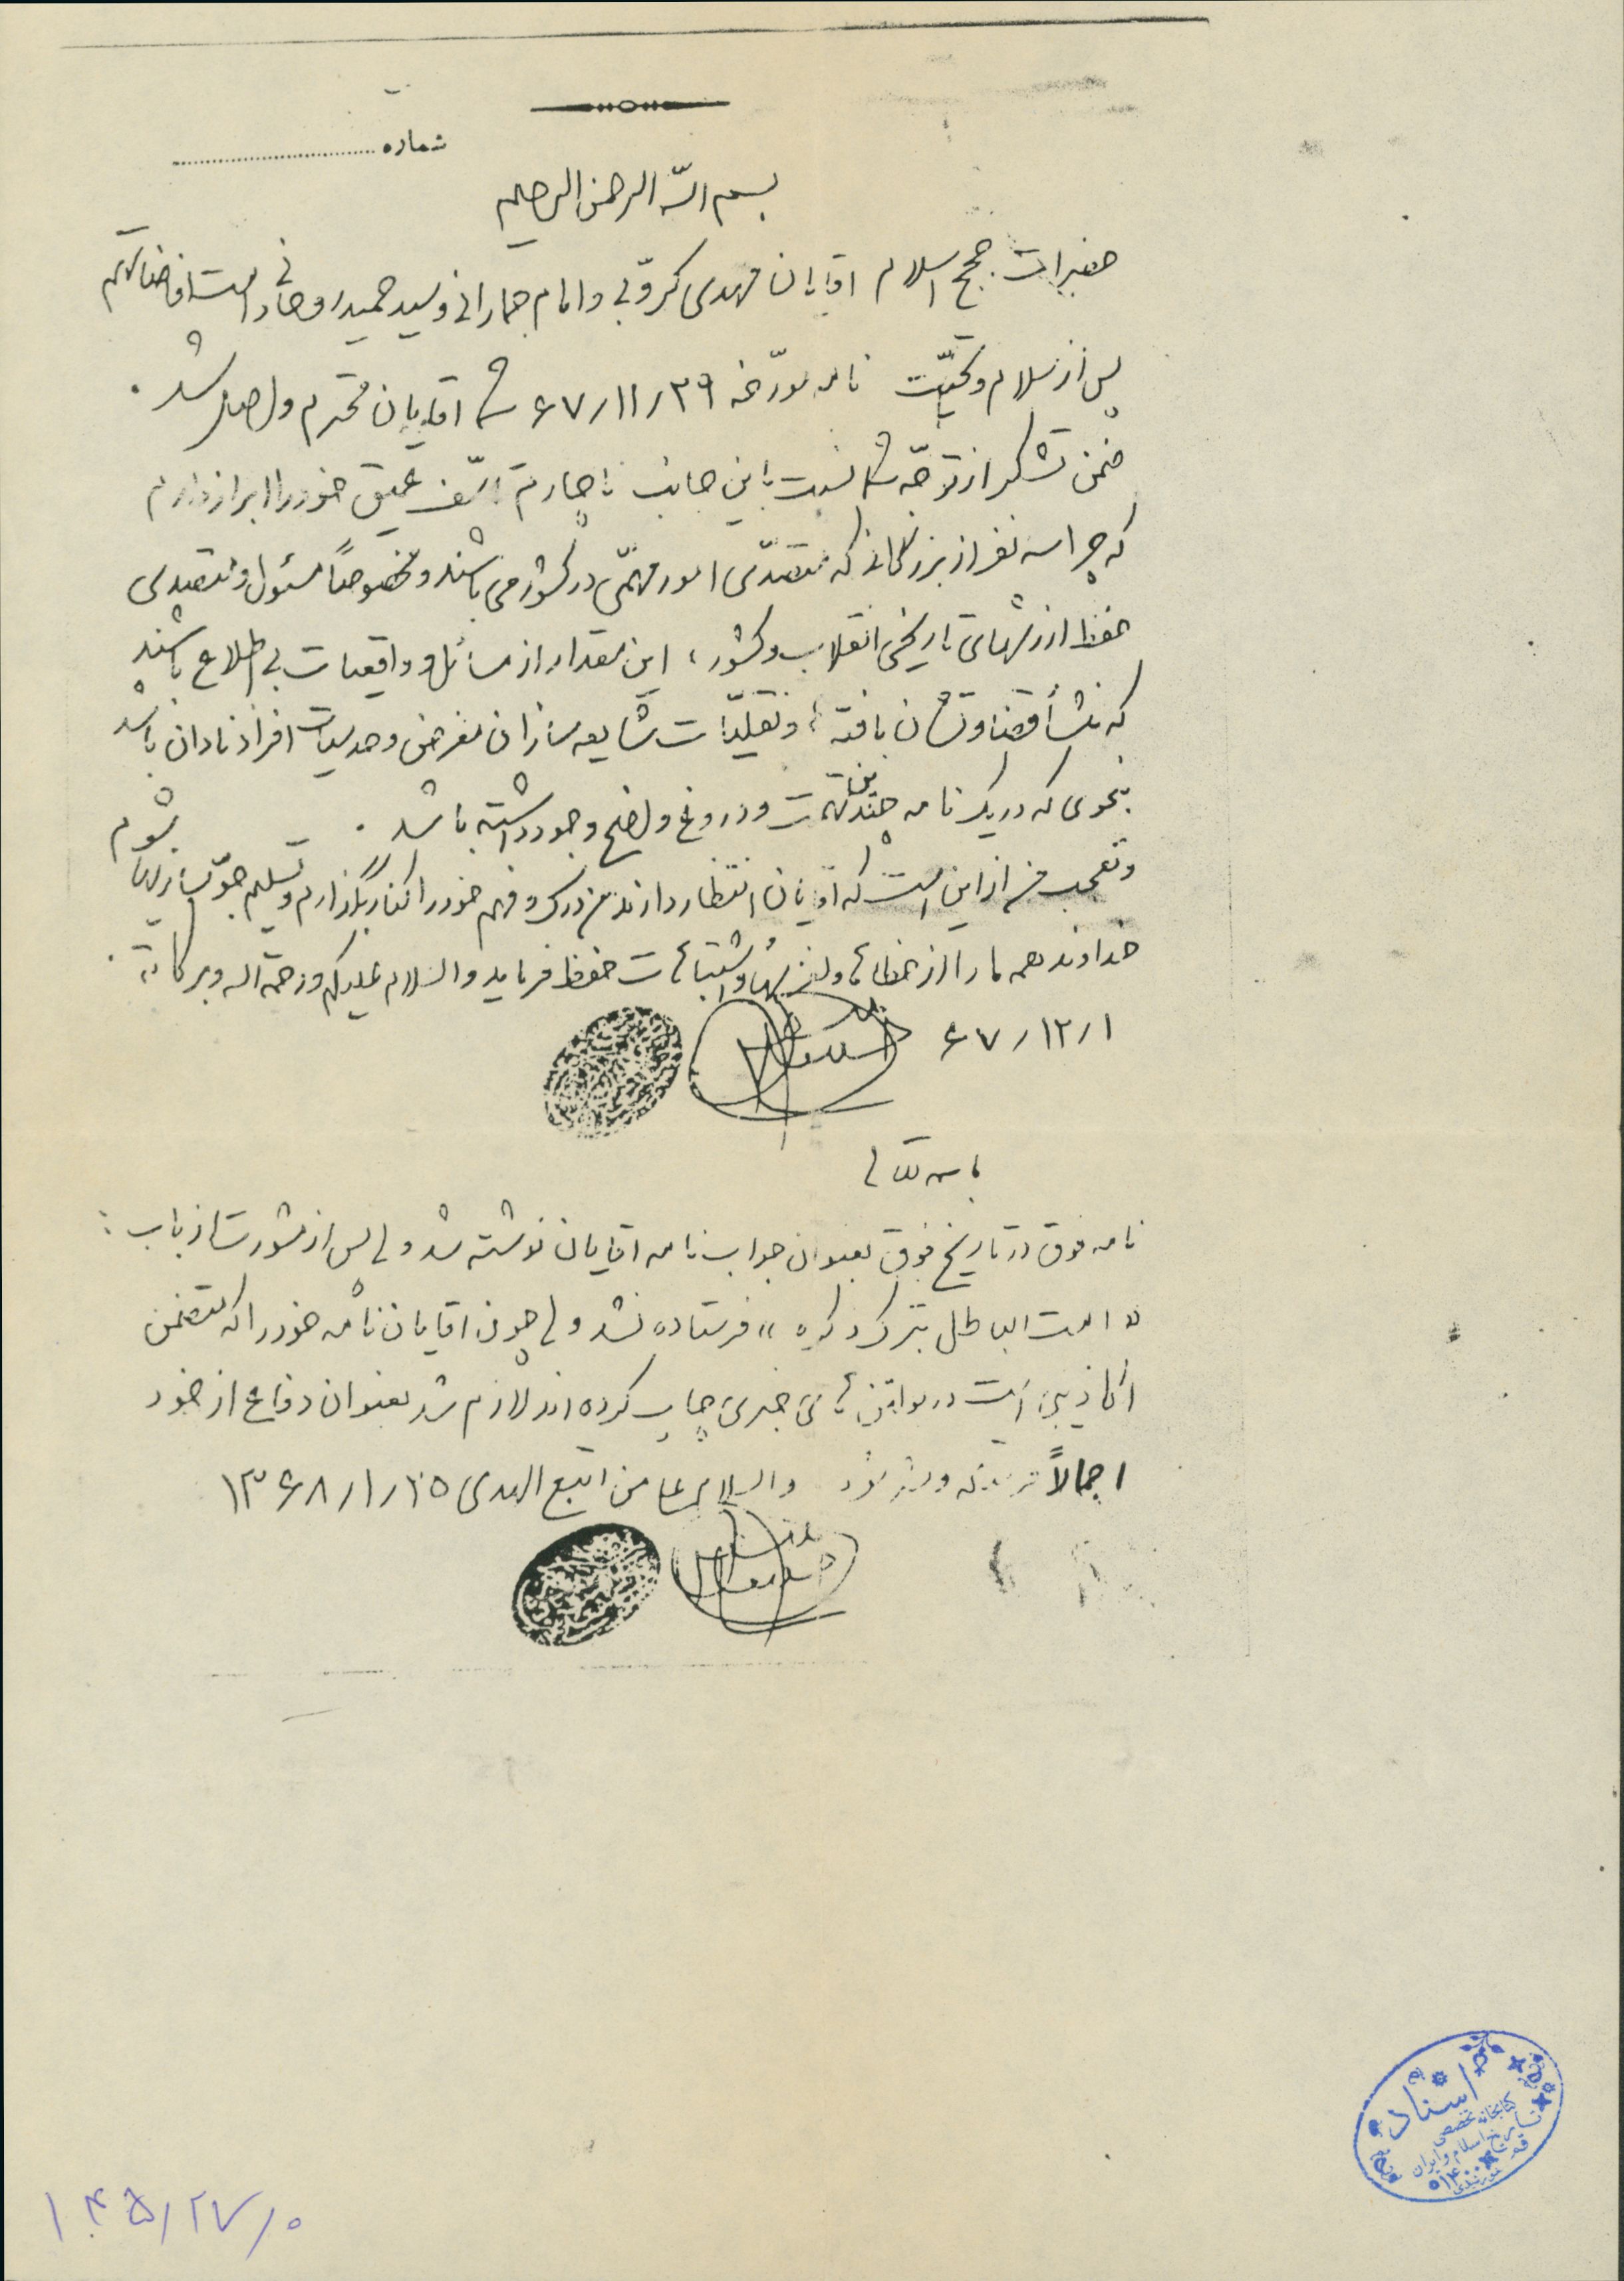 شماره
بسم الله الرحمن الرحیم
حضرات حجج اسلام آقایان مهدی کروبی و امام جمارانی و سید حمید روحانی دامت افاضاتهم
پس از سلام و تحیّت نامه مورّخه ۶۷/۱۱/۲۹ شما آقایان محترم واصل شد.
ضمن تشکر از توجّه شما نسبت باین جانب ناچارم تأسّف عمیق خود را ابراز دارم
که چرا سه نفر از بزرگانی که متصدّی امور مهمّی در کشور می باشند و خصوصاً مسئول و متصدی
حفظ ارزشهای تاریخی انقلاب و کشور، این مقدار از مسائل و واقعیات بی اطلاع باشند
که منشأ قضاوتشان بافته‌ها و نقلیّات شایعه سازان مغرض و حدسیات افراد نادان باشد
بنحوی که در یک نامه چندین تهمت و دروغ واضح وجود داشته باشد.
و تعجب من از این است که آقایان انتظار دارند من درک و فهم خود را کنار بگذارم و تسلیم جوّسازیها بشوم
خداوند همه ما را از خطاها و لغزشها و اشتباهات حفظ فرماید والسلام علیکم و رحمة اله و برکاته.
۶۷/۱۲/۱
باسمه تعالی
نامه فوق در تاریخ فوق بعنوان جواب نامه آقایان نوشته شد ولی پس از مشورت از باب:
«امت الباطل بترک ذکره» فرستاده نشد ولی چون آقایان نامه خود را که متضمن
اکاذیبی است در بولتن های خبری چاپ کرده اند لازم شد بعنوان دفاع از خود
اجمالاً والسلام علی من اتبع الهدی ۱۳۶۸/۱/۲۵
اسناد
کتابخانه تخصصی
تاریخ اسلام و ایران
قم